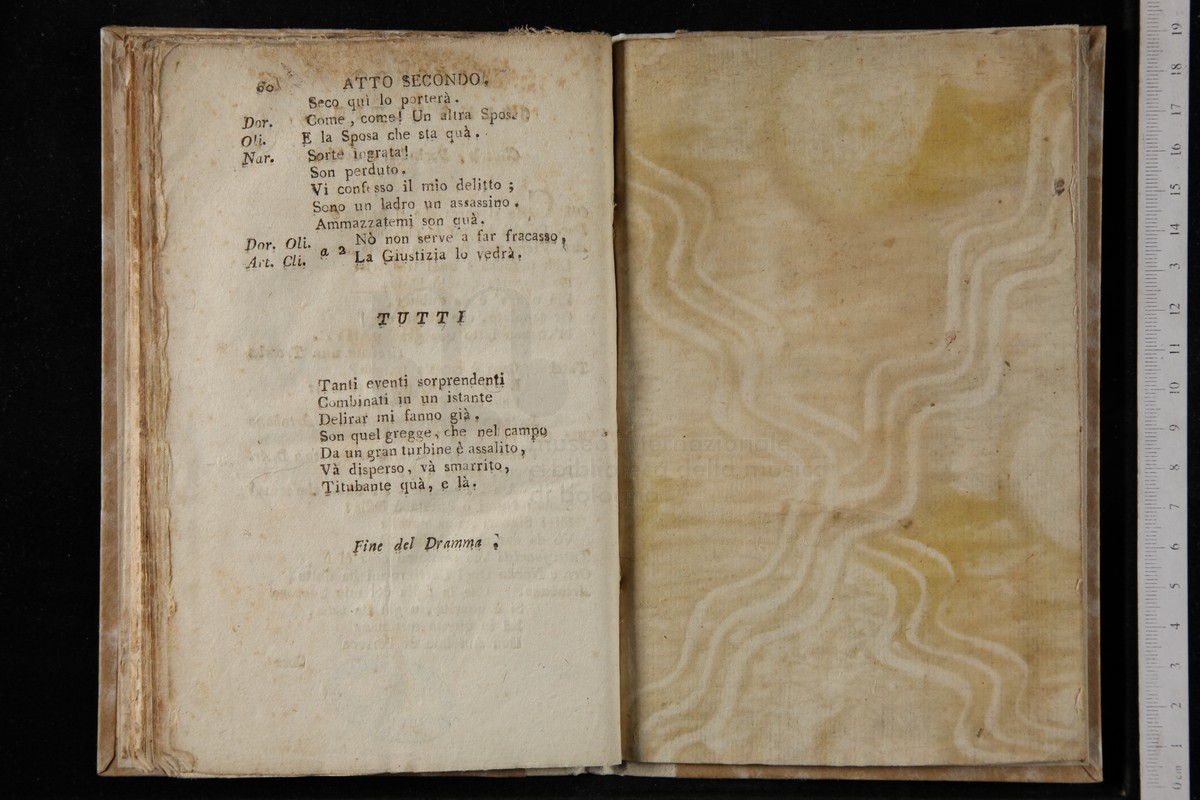 60 ATTO SECONDO.
Seco quì lo porterà.
Dor. Come, come! Un altra Sposa!
Oli. E la Sposa che sta quà.
Nar. Sorte ingrata!
Son perduto.
Vi confesso il mio delitto;
Sono un ladro un assassino.
Ammazzatemi son quà.
Dor. Oli. Nò non serve a far fracasso,
Art. Cli. a 2 La Giustizia lo vedrà.
TUTTI
Tanti eventi sorprendenti
Combinati in un istante
Delirar mi fanno già.
Son quel gregge, che nel campo
Da un gran turbine è assalito,
Và disperso, và smarrito,
Titubante quà, e là.
Fine del Dramma.
museo internazionale
e biblioteca della musica
di bologna